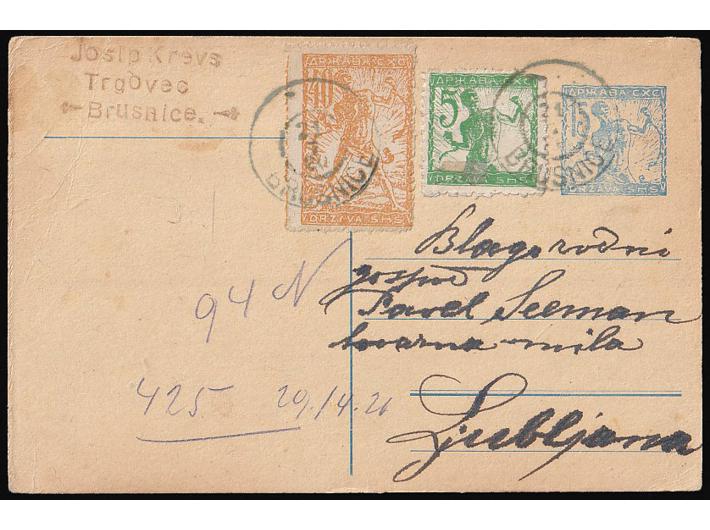 Josip Krevs
Trgovec
Brusnice.
ДРЖАВА СХС
40
DRŽAVA SHS
ДРЖАВА СХС
5
DRŽAVA SHS
ДРЖАВА СХС
15
DRŽAVA SHS
BRUSNICE
BRUSNICE
Blagorodni
gospod
Pavel Seeman
tovarna mila
Ljubljana
94 N
425 29/4. 21